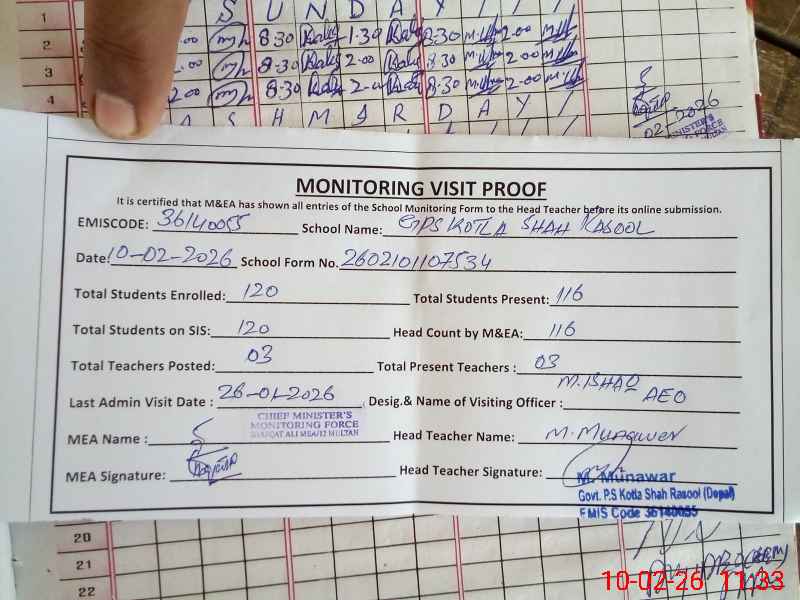 1 S U N D A Y / / / /
2 .00 8.30 1.30 8.30 2.00
3 .00 8.30 2.00 8.30 2.00
2.00 8.30 8.30 2.00
4 A S H M A R D A Y / /
02 2026
MINISTER'S
FORCE
MULTAN
MONITORING VISIT PROOF
It is certified that M&EA has shown all entries of the School Monitoring Form to the Head Teacher before its online submission.
EMISCODE: 36140055 School Name: GPS KOTLA SHAH RASOOL
Date: 10-02-2026 School Form No. 2602101107534
Total Students Enrolled: 120 Total Students Present: 116
Total Students on SIS: 120 Head Count by M&EA: 116
Total Teachers Posted: 03 Total Present Teachers: 03
Last Admin Visit Date: 26-01-2026 Desig.& Name of Visiting Officer: M. ISHAQ AEO
CHIEF MINISTER'S
MONITORING FORCE
MEA/12 MULTAN
MEA Name: Head Teacher Name: M. Munawer
MEA Signature: Head Teacher Signature:
M. Munawar
Govt. P.S Kotla Shah Rasool (Depal)
EMIS Code 36140055
20
21
22
10-02-26 11:33